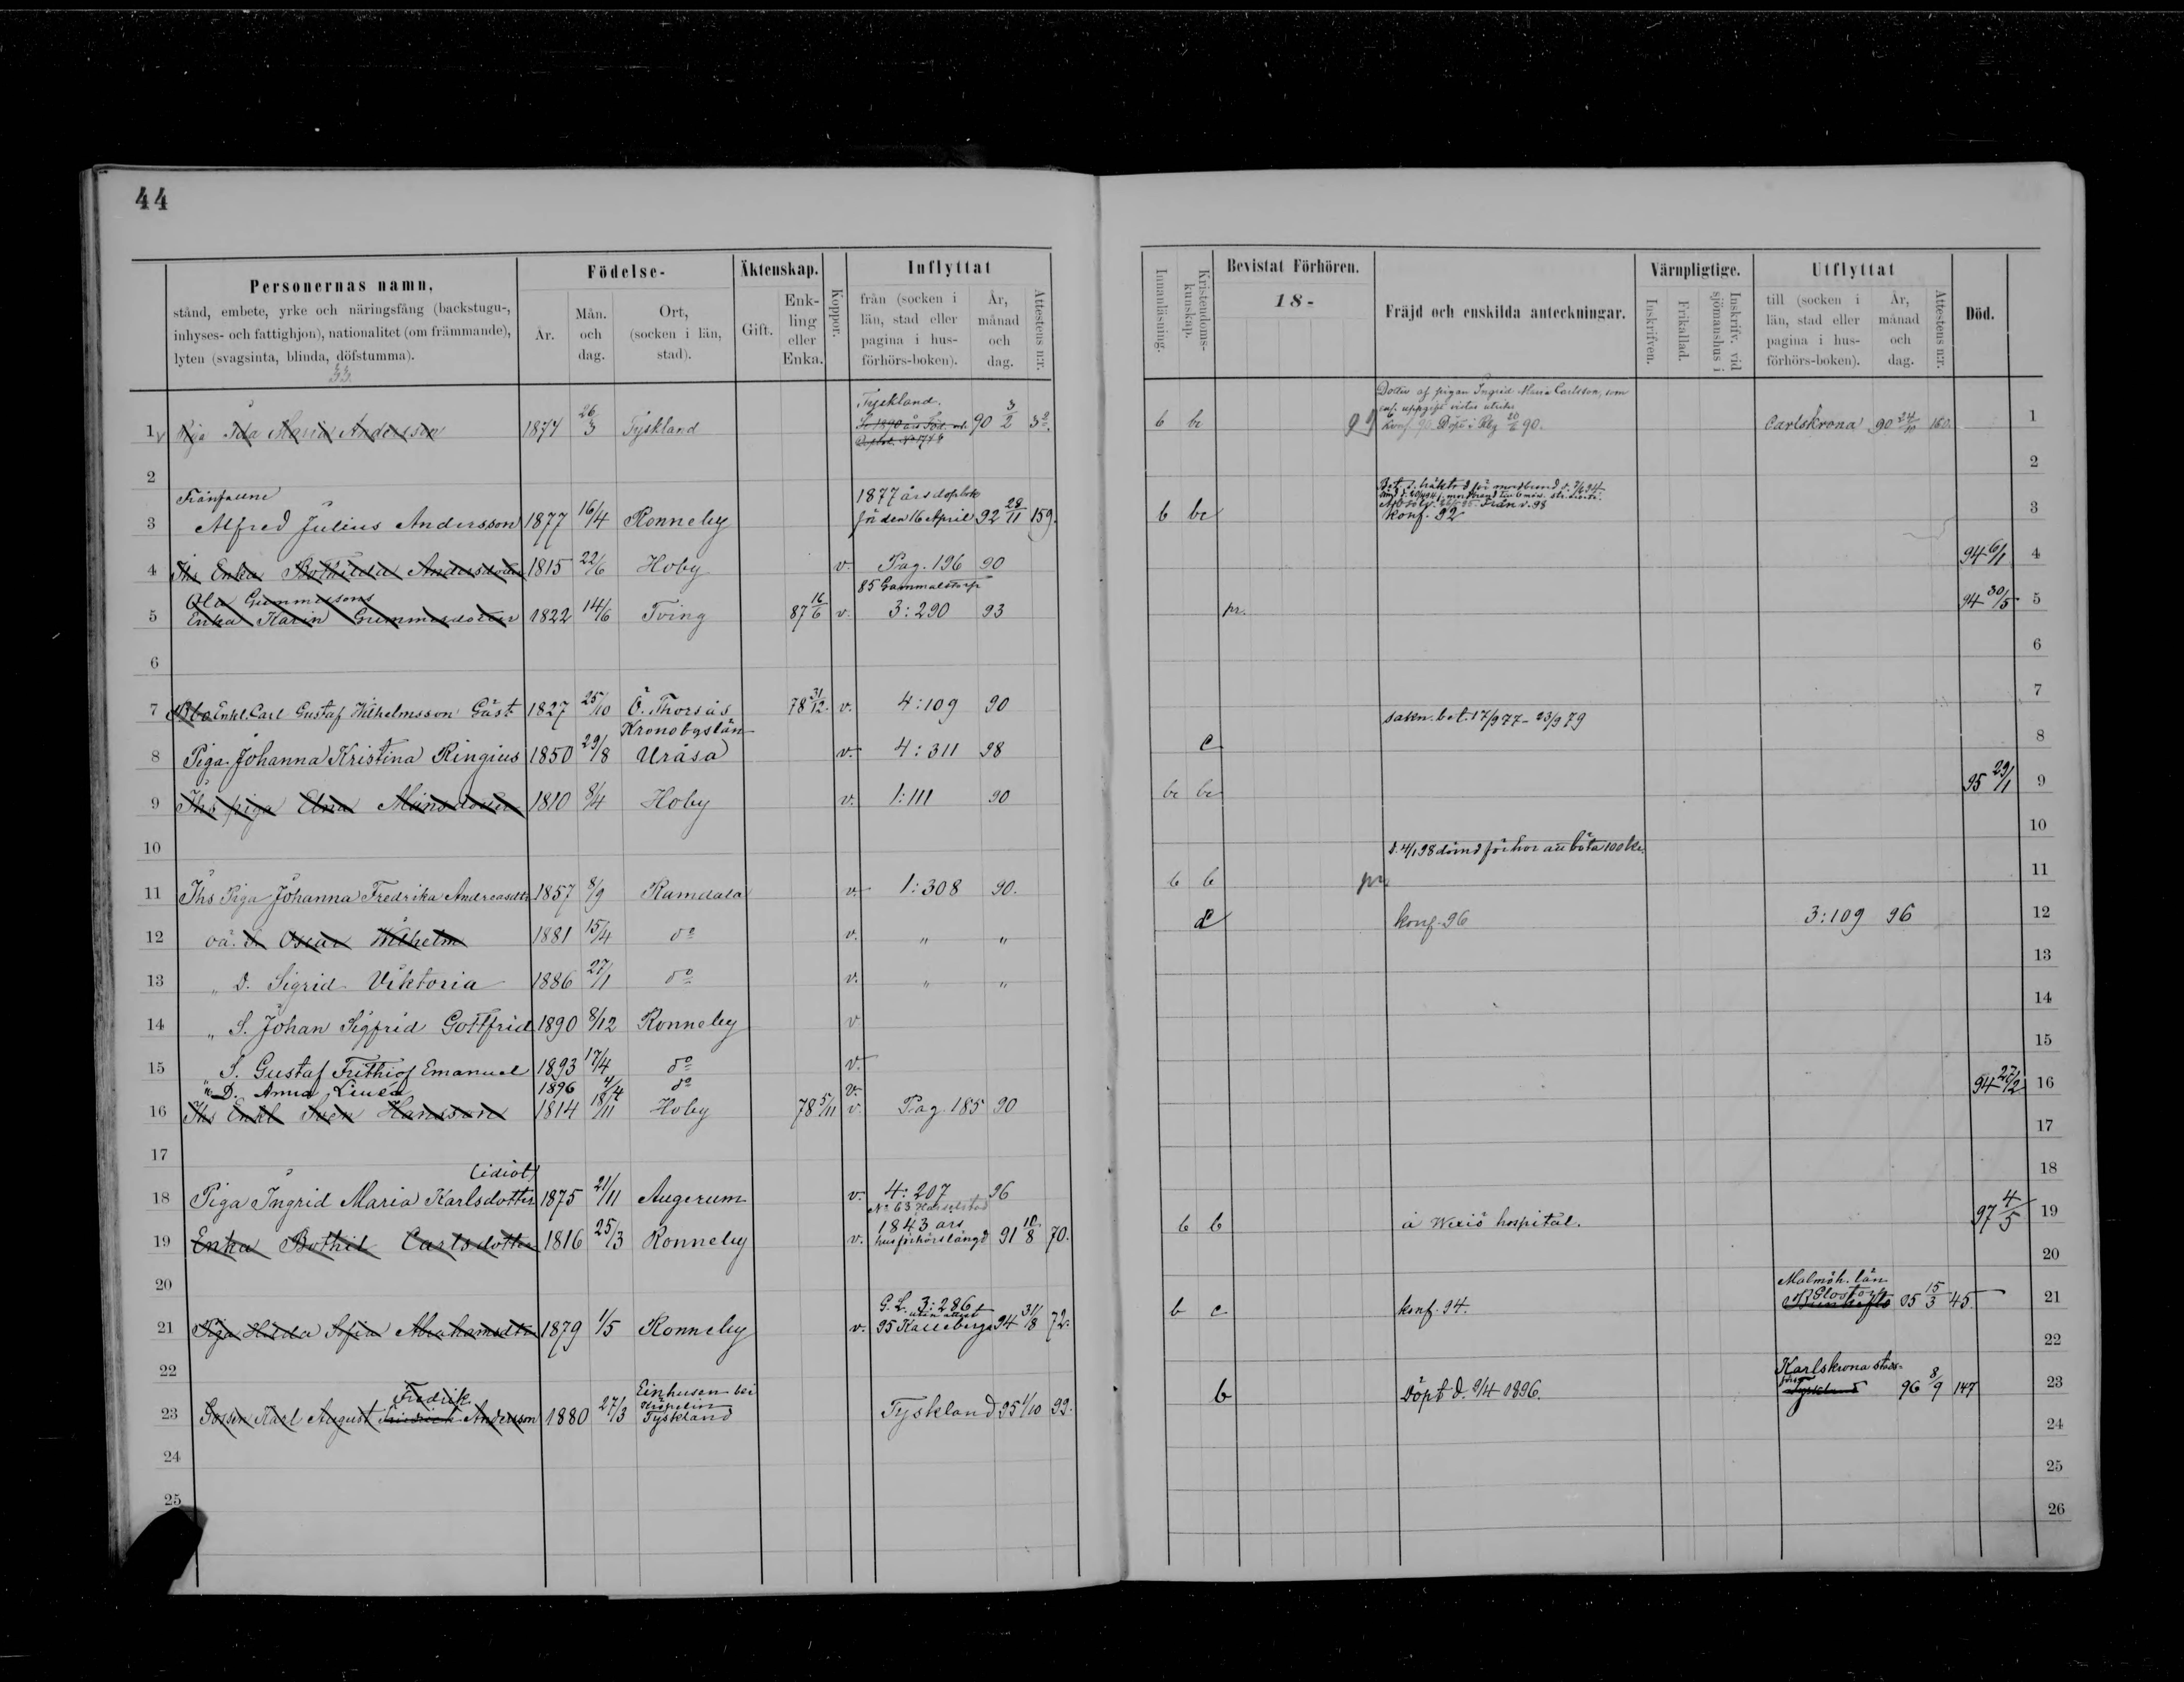 44
Personernas namn,
stånd, embete, yrke och näringsfång (backstugu-,
inhyses- och fattighjon), nationalitet (om främmande),
lyten (svagsinta, blinda, döfstumma).
Födelse-
År.
Mån. och dag.
Ort, (socken i län, stad).
Äktenskap.
Gift.
Enk-ling eller Enka.
Koppor.
Inflyttat
från (socken i län, stad eller pagina i hus-förhörs-boken).
År, månad och dag.
Attestens n:r.
Innanläsning.
Kristendoms-kunskap.
Bevistat Förhören.
18-
Fräjd och enskilda anteckningar.
Värnpligtige.
Inskrifven.
Frikallad.
Inskrifv. vid sjömanshus i
Utflyttat
till (socken i län, stad eller pagina i hus-förhörs-boken).
År, månad och dag.
Attestens n:r.
Död.
1 Piga Ida Maria Andersson 1874 26/3 Tyskland Tyskland. 90 3/2 b bc Dotter af pigan Ingrid Maria Carlsson, som
Carlskrona 90 24/10 1
2
Frånfallne
3 Alfred Julius Andersson 1877 16/4 Ronneby 1877 års dopbok
för den 16 April 92 28/11 159. b bc konf. 92 3
4 Ihs Enka Andersdotter 1815 22/6 Hoby v. Pag. 196 90 94 6/1 4
Ola Gummessons 85 Gammalstorp
5 Enka Karin Gummesdotter 1822 14/6 Tving 87 16/6 v. 3:290 93 pr. 94 30/5 5
6
7 Åbo Enkl. Carl Gustaf Wilhelmsson Gäst 1827 25/10 Ö. Thorsås 78 31/12. v. 4:109 90 sakn. bet. 17/9 77 - 23/9 79 7
Kronobgslän
8 Piga Johanna Kristina Ringius 1850 29/8 Uråsa v. 4:311 98 c 8
9 Ihs piga Elna Månsdotter 1810 8/4 Hoby v. 1:111 90 bc bc 95 29/1 9
10
d. 4/1 98 dömd för hor att böta 100 kr.
11 Ihs Piga Johanna Fredrika Andreasdtr 1857 8/9 Ramdala v. 1:308 90. b b pr. 11
12 oä. S. Oscar Wilhelm 1881 15/4 do v. " " konf. 96 3:109 96 12
13 " D. Sigrid Viktoria 1886 27/1 do v. " " 13
14 " S. Johan Sigfrid Gottfrid 1890 8/12 Ronneby v 14
15 S. Gustaf Frithiof Emanuel 1893 17/4 do v. 15
" D. Anna Linéa 1896 4/4 do v.
16 Ihs Enkl Sven Hansson 1814 18/11 Hoby 78 5/11 v. Pag. 185 90 94 27/12 16
17
(idiot)
18 Piga Ingrid Maria Karlsdotter 1875 21/11 Augerum v. 4:207 96 18
No 63
1843 års
19 Enka Bothil Carlsdotter 1816 25/3 Ronneby v. husförhörslängd 91 10/8 70. b b å Wexiö hospital. 97 4/5 19
20
G.L. 3:286
utan attest
21 Piga Hilda Sofia Abrahamsdtr 1879 1/5 Ronneby v. 95 Kalleberga 94 31/8 72. b c konf. 94. Malmöh. län
Glostorp 05 15/3 45. 21
22
Fredrik
Einhusen bei
23 Gossen Karl August Friedrich Andersson 1880 27/3 Tyskland Tyskland 95 1/10 99. b Döpt d. 9/4 1896. Karlskrona stads-
Tyskland 96 8/9 147 23
24
25
26